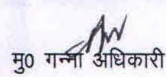 मु0 गन्ना अधिकारी